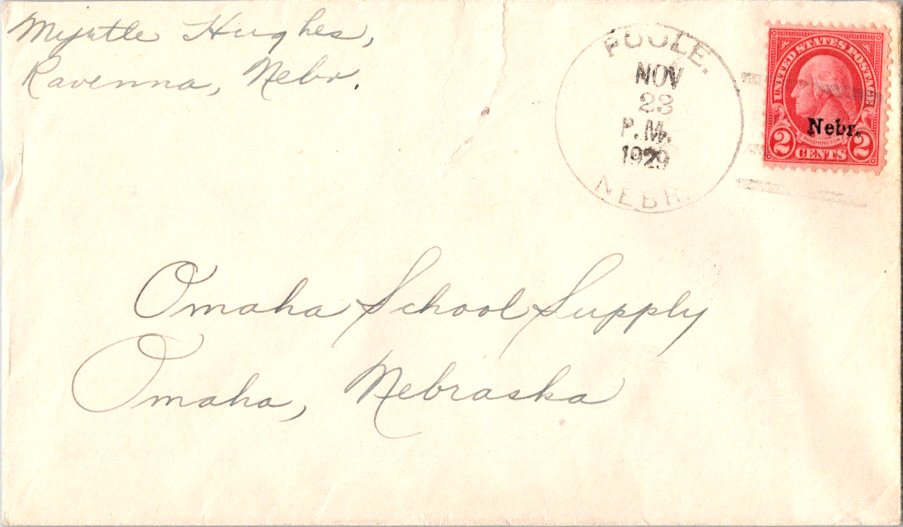 Myrtle Hughes,
Ravenna, Nebr.
POOLE.
NOV
23
P.M.
1929
NEBR.
UNITED STATES POSTAGE
Nebr.
2 CENTS 2
Omaha School Supply
Omaha, Nebraska